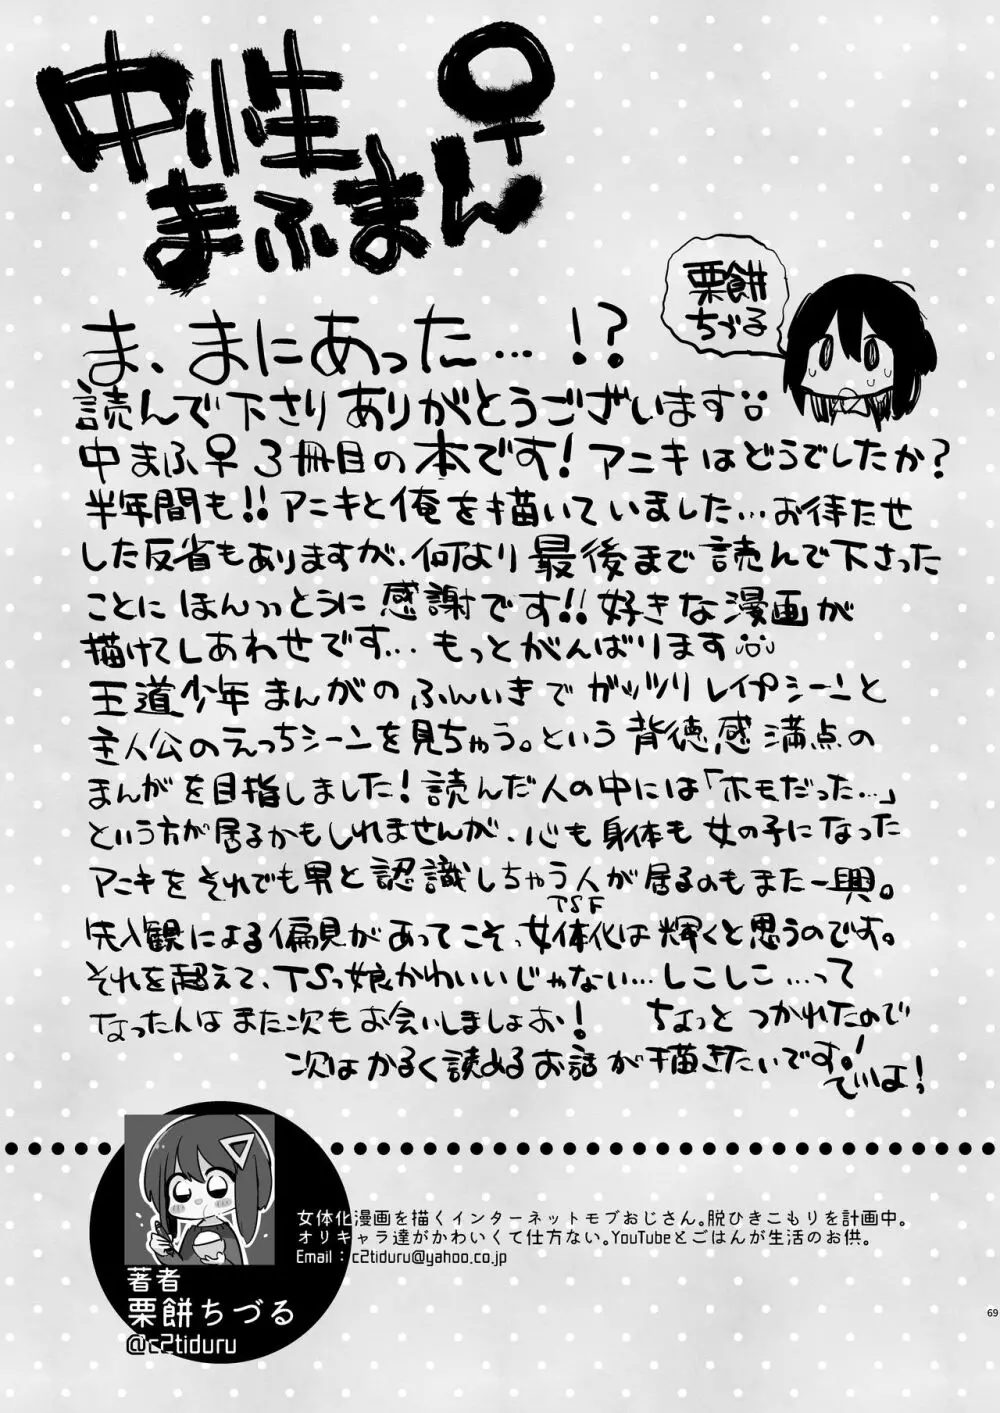 中性
まふまん♀
栗餅
ちづる
ま、まにあった…!?
読んで下さりありがとうございます
中まふ♀3冊目の本です!アニキはどうでしたか?
半年間も!!アニキと俺を描いていました…お待たせ
した反省もありますが、何より最後まで読んで下さった
ことにほんっっとうに感謝です!!好きな漫画が
描けてしあわせです…もっとがんばります
王道少年まんがのふんいきでガッツリレイプシーンと
主人公のえっちシーンを見ちゃう。という背徳感満点の
まんがを目指しました!読んだ人の中には「ホモだった…」
という方が居るかもしれませんが、心も身体も女の子になった
アニキをそれでも男と認識しちゃう人が居るのもまた一興。
先入観による偏見があってこそ、女体化は輝くと思うのです。
TSF
それを超えて、TSっ娘かわいいじゃない…しこしこ…って
なったんはまた次もお会いしましょお! ちょっとつかれたので
次はかるく読めるお話が描きたいです!
でいよ!
女体化漫画を描くインターネットモブおじさん。脱ひきこもりを計画中。
オリキャラ達がかわいくて仕方ない。YouTubeとごはんが生活のお供。
Email : c2tiduru@yahoo.co.jp
著者
栗餅ちづる
@c2tiduru
69